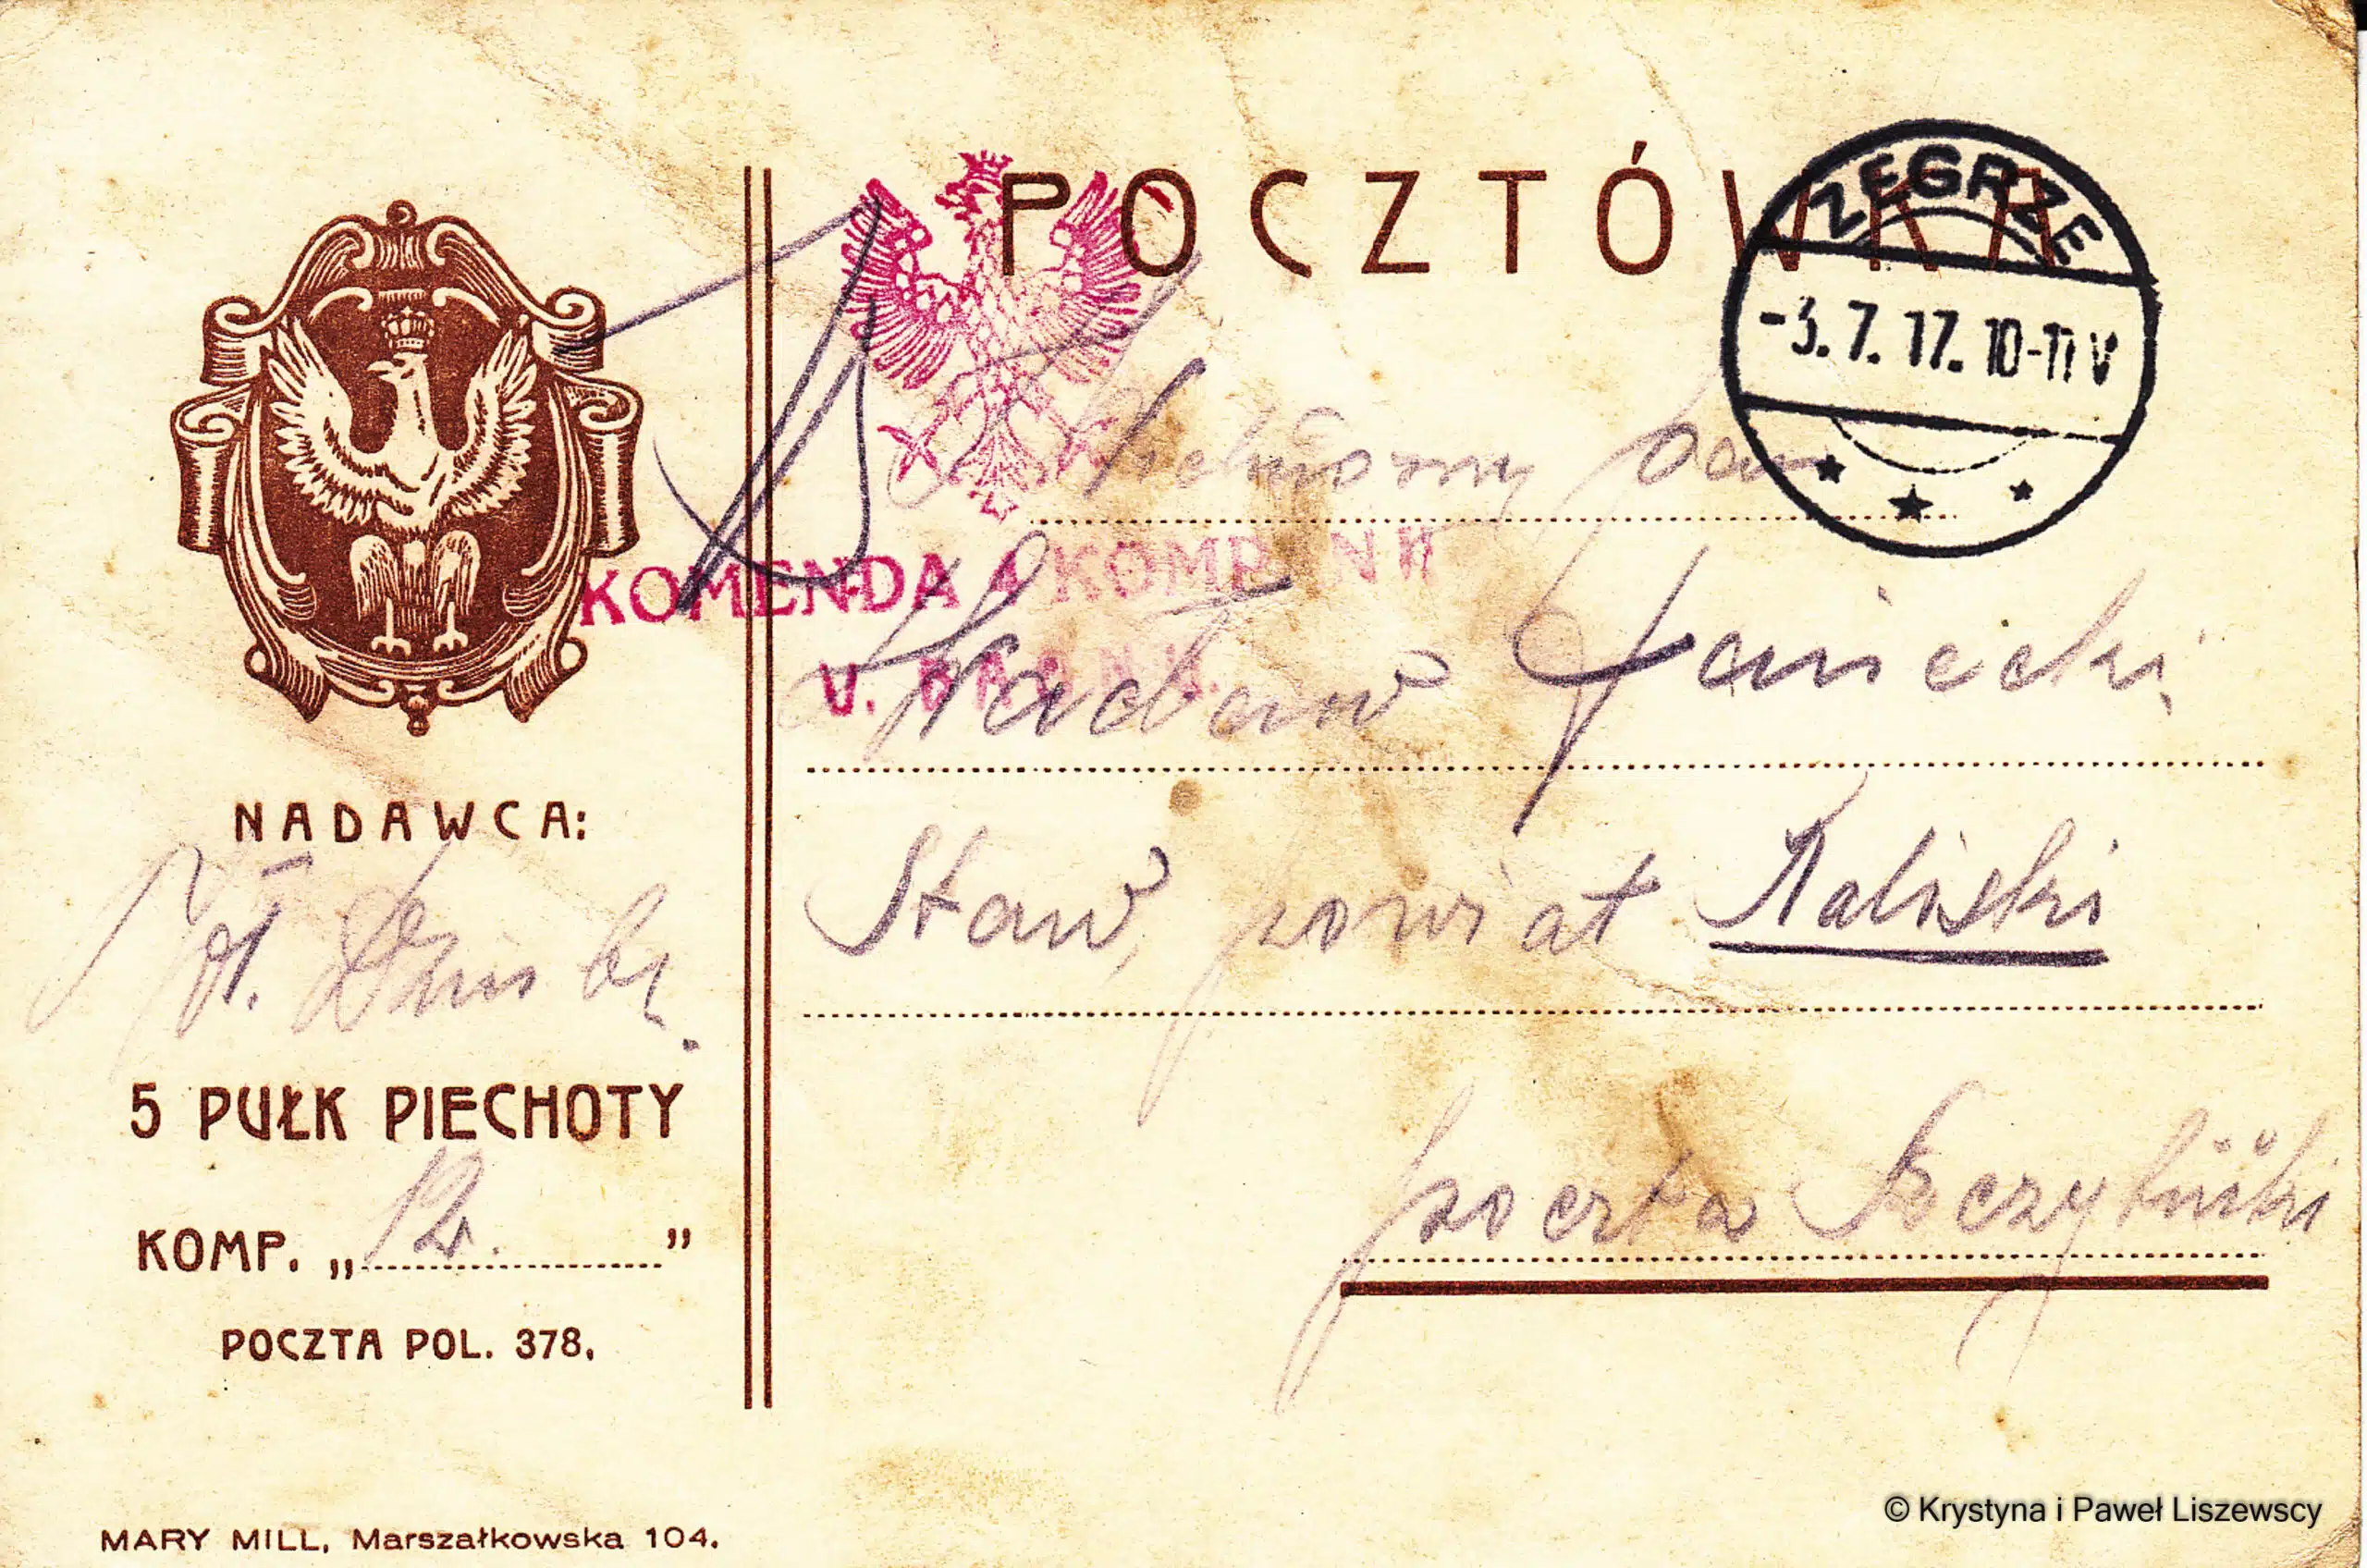 POCZTÓWKA
ZEGRZE
-3. 7. 17. 10-11 V
KOMENDA 4 KOMPANII
V. BAONU.
pan
Wacław Janiecki
Staw, powiat Kaliski
poczta
NADAWCA:
5 PUŁK PIECHOTY
KOMP. „12.”
POCZTA POL. 378.
MARY MILL, Marszałkowska 104.
© Krystyna i Paweł Liszewscy